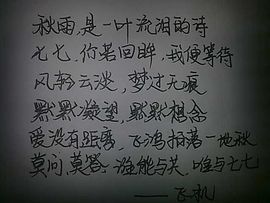 秋雨,是一叶流泪的诗
七七,你若回眸,我便等待
风轻云淡,梦过无痕
默默凝望,默默想念
爱没有距离,飞鸿拍着一地秋
莫问,莫答.谁能与共,唯与七七
——飞机